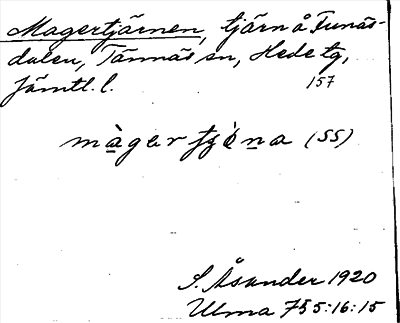 Magertjärnen, tjärn å Funäs-
dalen, Tännäs sn, Hede tg,
Jämtl. l.
157
màgertjèna (SS)
S. Åsander 1920
Ulma 755:16:15